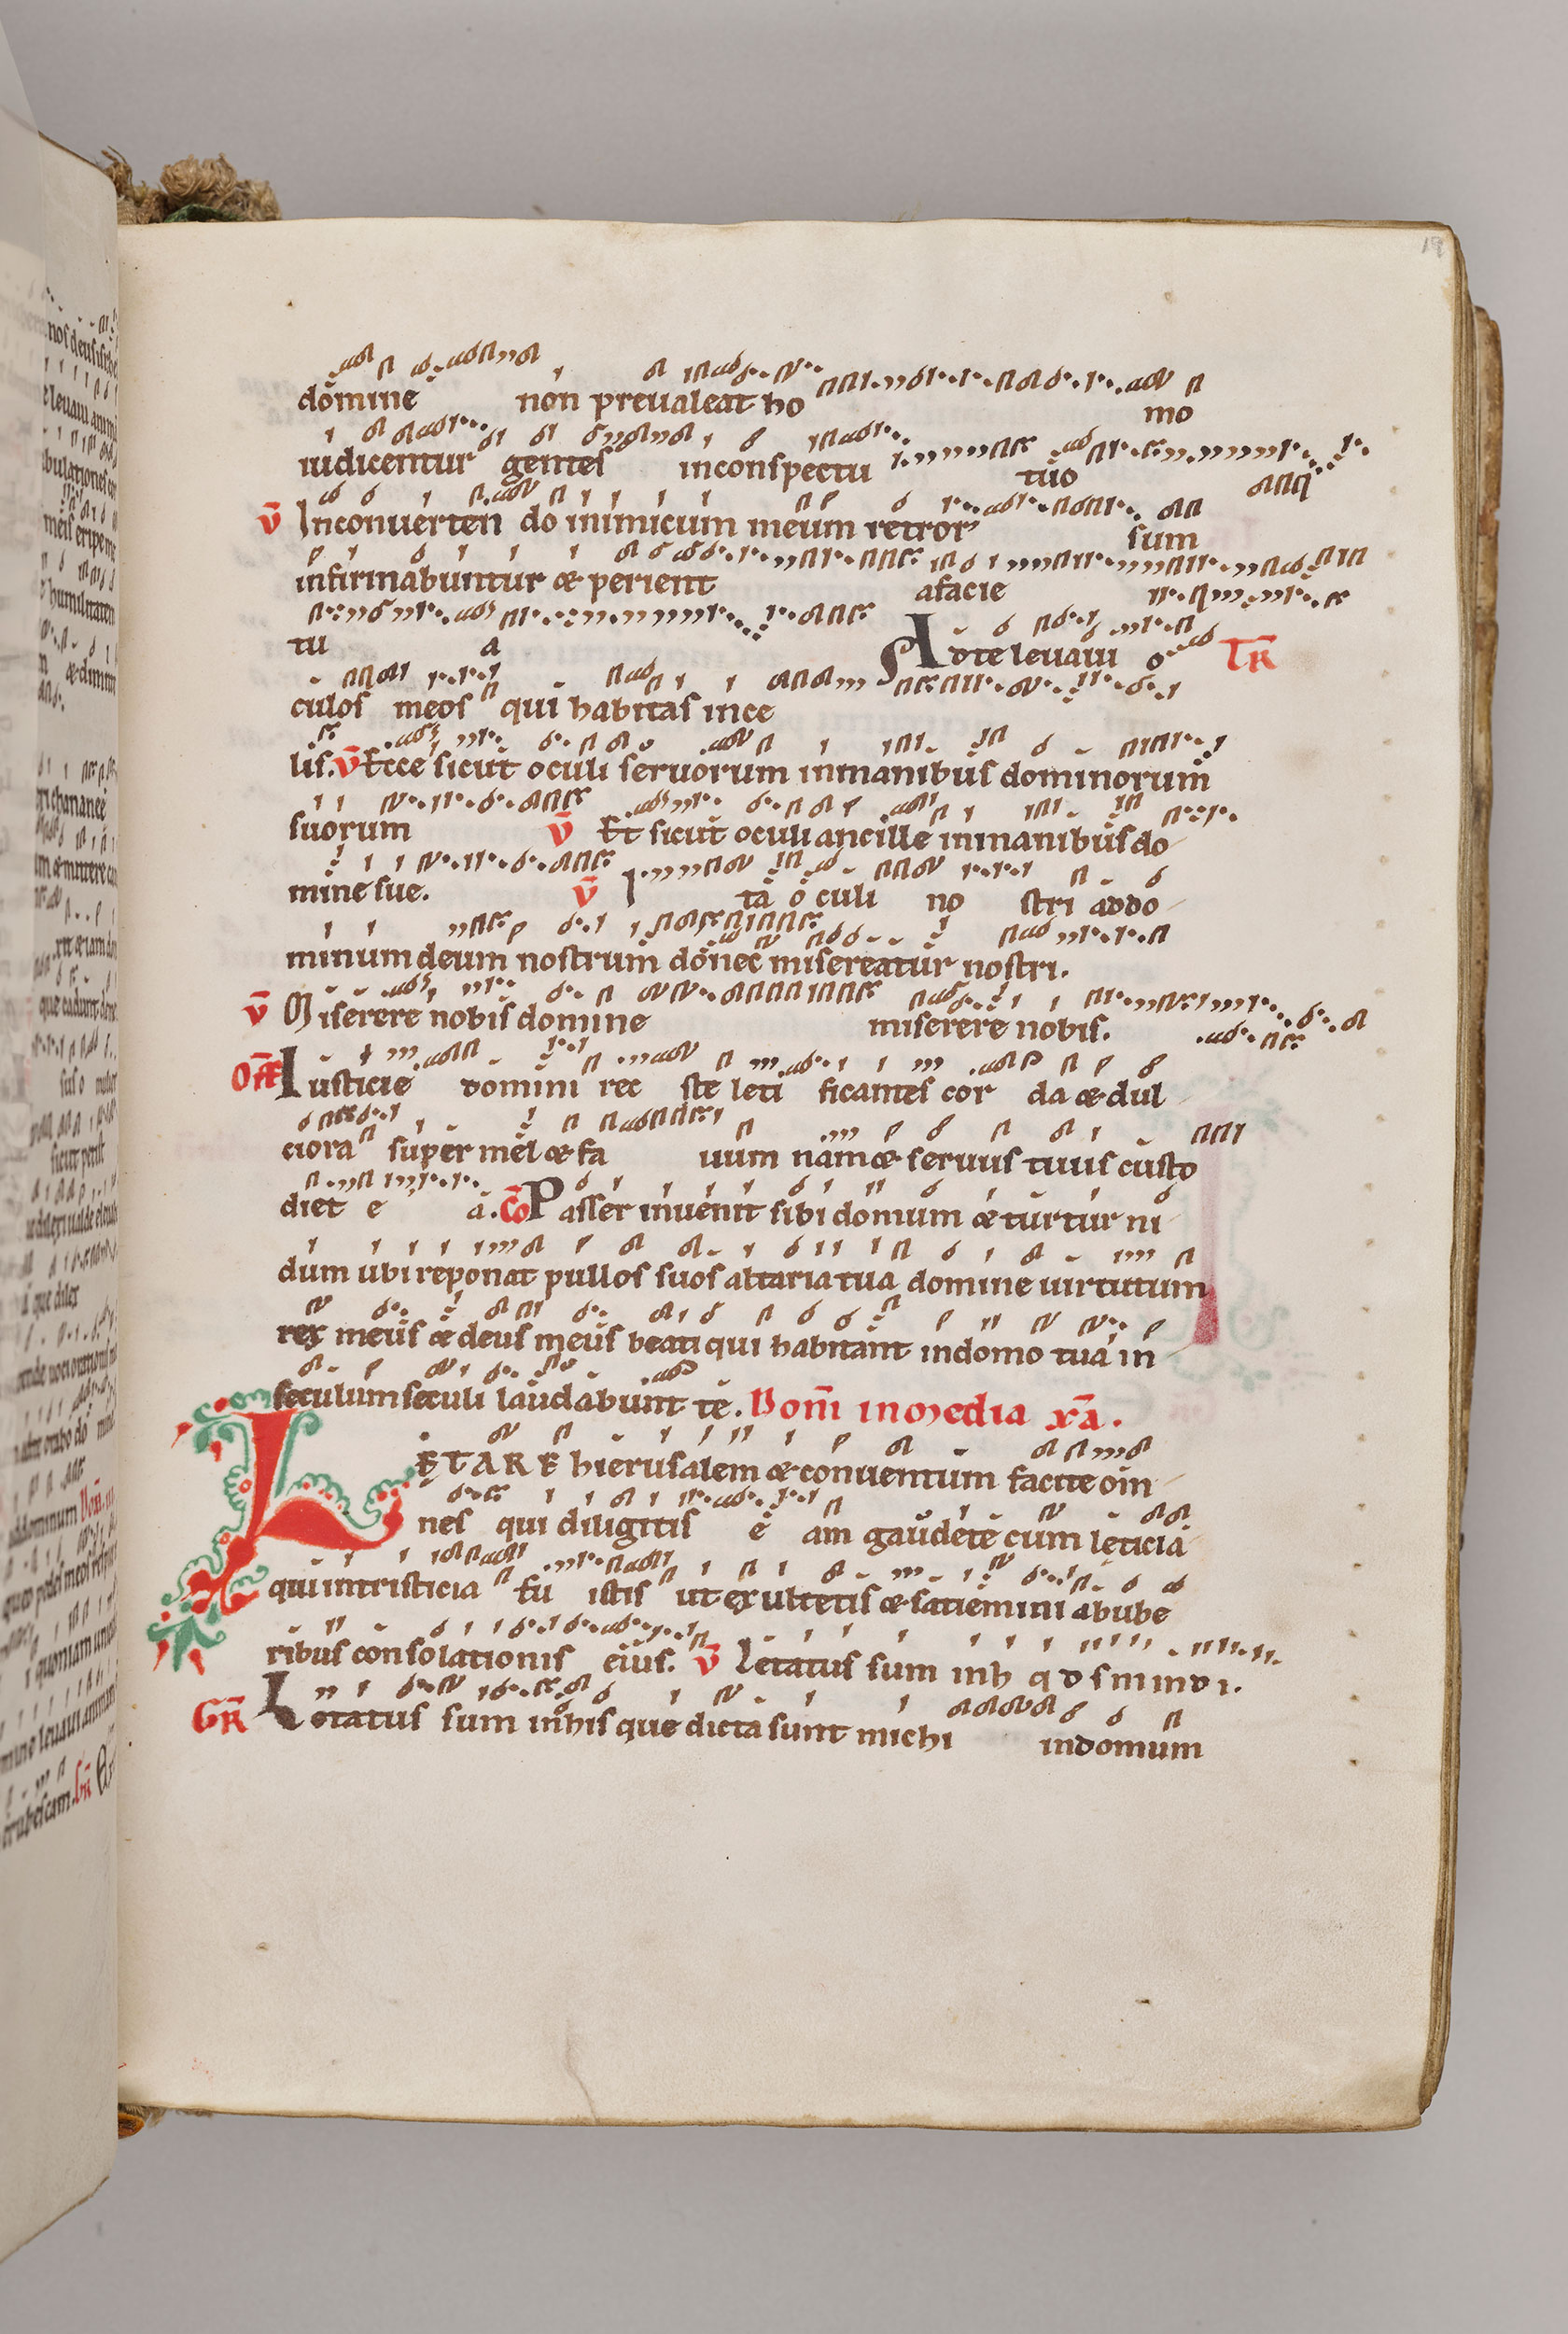 19
domine non preualeat ho mo
iudicentur gentes inconspectu tuo
v̄ Inconuerten do inimicum meum retror sum
infirmabuntur & perient afacie
tu a Adte leuaui o TR̄
culos meos qui habitas ince
lis. v̄ Ecce sicut oculi seruorum inmanibus dominorum
suorum v̄ Et sicut oculi ancille inmanibus do
mine sue. v̄ I ta o culi no stri addo
minum deum nostrum donec misereatur nostri.
v̄ Miserere nobis domine miserere nobis.
Off̄ Iusticie domini rec ste leti ficantes cor da & dul
ciora super mel & fa uum nam & seruus tuus custo
diet e a. Cō Passer inuenit sibi domum & turtur ni
dum ubi reponat pullos suos altaria tua domine uirtutum
rex meus & deus meus beati qui habitant indomo tua in
seculum seculi laudabunt te. Dom̄ in media xl̄a.
LĘTARE hierusalem & conuentum facite om
nes qui diligitis e am gaudete cum lęticia
qui intristicia fu istis ut exultetis & satiemini abube
ribus consolationis eius. v̄ Letatus sum inh q d s m i.
GR̄ Letatus sum inhis que dicta sunt michi indomum